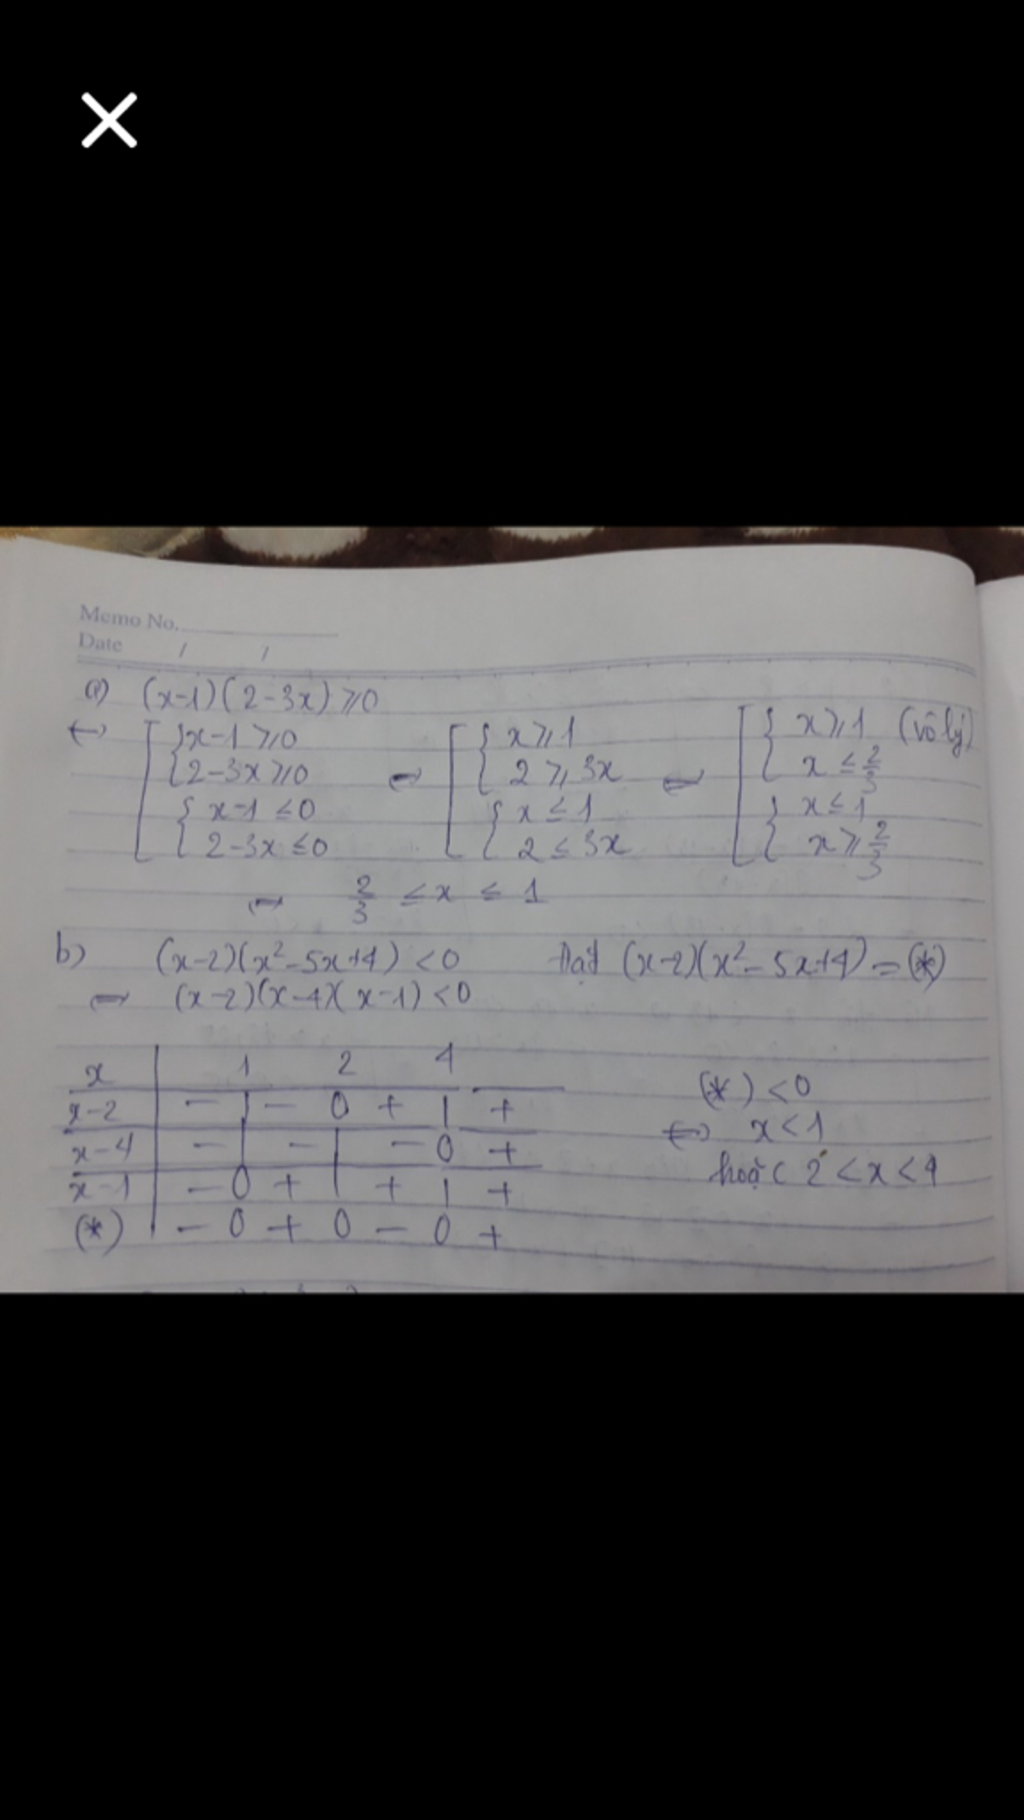 Memo No.
Date / /
a) (x-1)(2-3x) ⩾0
↔ [ { x-1 ⩾0 ⇔ [ { x⩾1 ⇔ [ { x⩾1 (vô lý)
2-3x ⩾0 2 ⩾ 3x x ≤ 2/3
{ x-1 ≤0 { x ≤ 1 { x ≤ 1
2-3x ≤0 2 ≤ 3x x ⩾ 2/3
⇔ 2/3 ≤ x ≤ 1
b) (x-2)(x²-5x+4) <0 Đặt (x-2)(x²-5x+4) = (*)
⇔ (x-2)(x-4)(x-1) <0
x | 1 2 4
x-2 | - | - 0 + | +
x-4 | - | - | - 0 +
x-1 | - 0 + | + | +
(*) | - 0 + 0 - 0 +
(*) <0
⇔ x<1
hoặc 2 <x <4